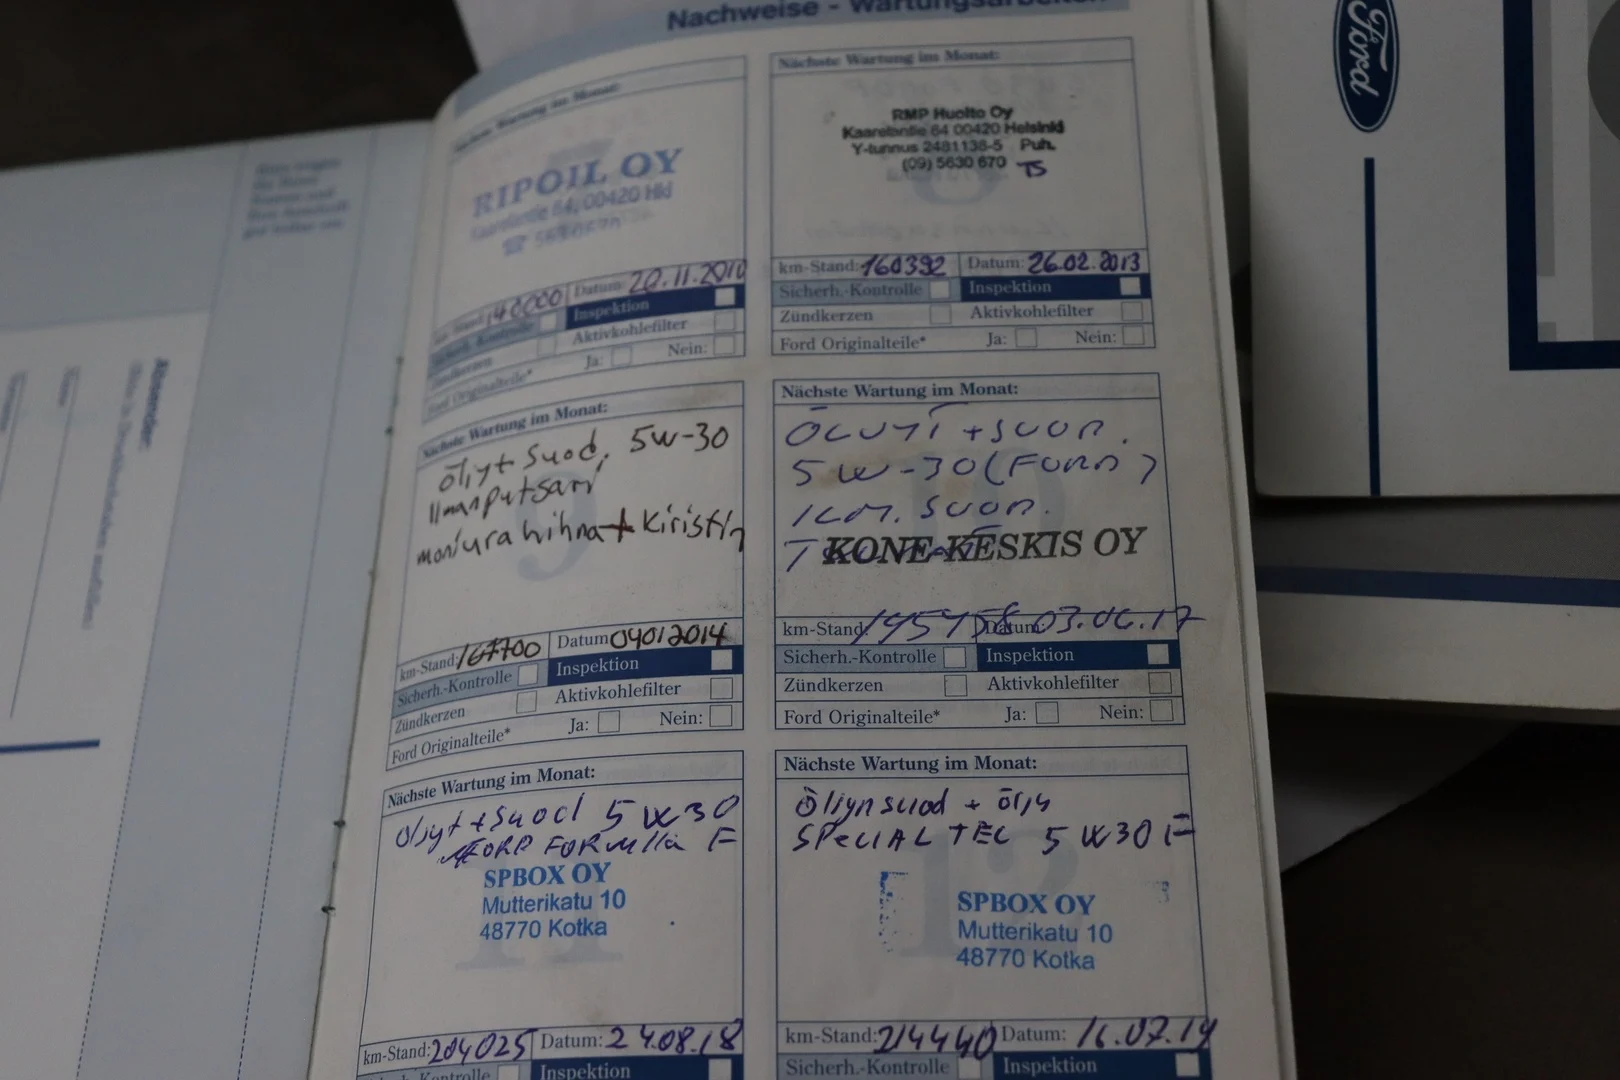 Nachweise - Wartungsarbeiten
Nächste Wartung im Monat:
RIPOIL OY
Kaarelantie 64, 00420 Hki
☎ 5630670
km-Stand: 140000 Datum: 20.11.2010
Sicherh.-Kontrolle Inspektion
Zündkerzen Aktivkohlefilter
Ford Originalteile* Ja: Nein:
Nächste Wartung im Monat:
RMP Huolto Oy
Kaarelantie 64 00420 Helsinki
Y-tunnus 2481138-5 Puh.
(09) 5630 670 TS
km-Stand: 160392 Datum: 26.02.2013
Sicherh.-Kontrolle Inspektion
Zündkerzen Aktivkohlefilter
Ford Originalteile* Ja: Nein:
Nächste Wartung im Monat:
9
öljyt Suod. 5W-30
Ilmanputsari
moniura hihna + kiristin
km-Stand: 167700 Datum 04012014
Sicherh.-Kontrolle Inspektion
Zündkerzen Aktivkohlefilter
Ford Originalteile* Ja: Nein:
Nächste Wartung im Monat:
10
ÖLJYT + SUOD.
5W-30 (FORD)
ILM. SUOD.
KONE-KESKIS OY
km-Stand: 195458 Datum: 03.06.17
Sicherh.-Kontrolle Inspektion
Zündkerzen Aktivkohlefilter
Ford Originalteile* Ja: Nein:
Nächste Wartung im Monat:
11
Öljyt + Suod 5W30
FORD FORMULLA F
SPBOX OY
Mutterikatu 10
48770 Kotka
km-Stand: 204025 Datum: 24.08.18
Sicherh.-Kontrolle Inspektion
Nächste Wartung im Monat:
12
Öljynsuod + öljy
SPECIAL TEC 5W30 F
SPBOX OY
Mutterikatu 10
48770 Kotka
km-Stand: 214440 Datum: 16.07.19
Sicherh.-Kontrolle Inspektion
Ford
Absender